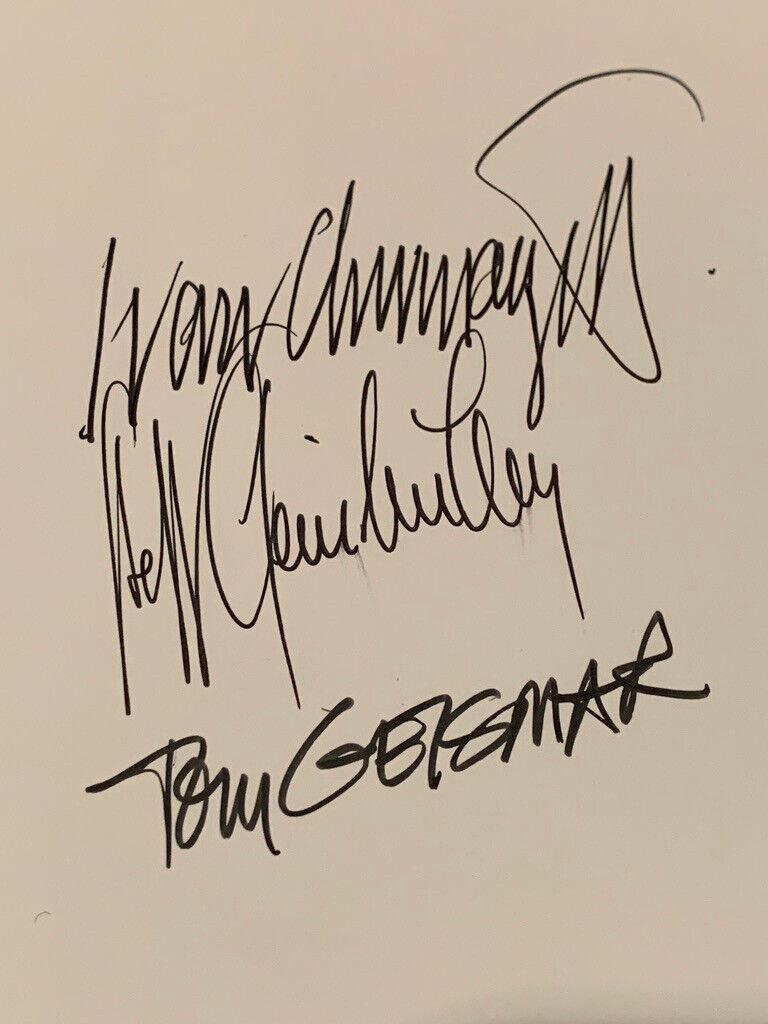 Ivan Chermayeff
Steff Geissbuhler
Tom GEISMAR